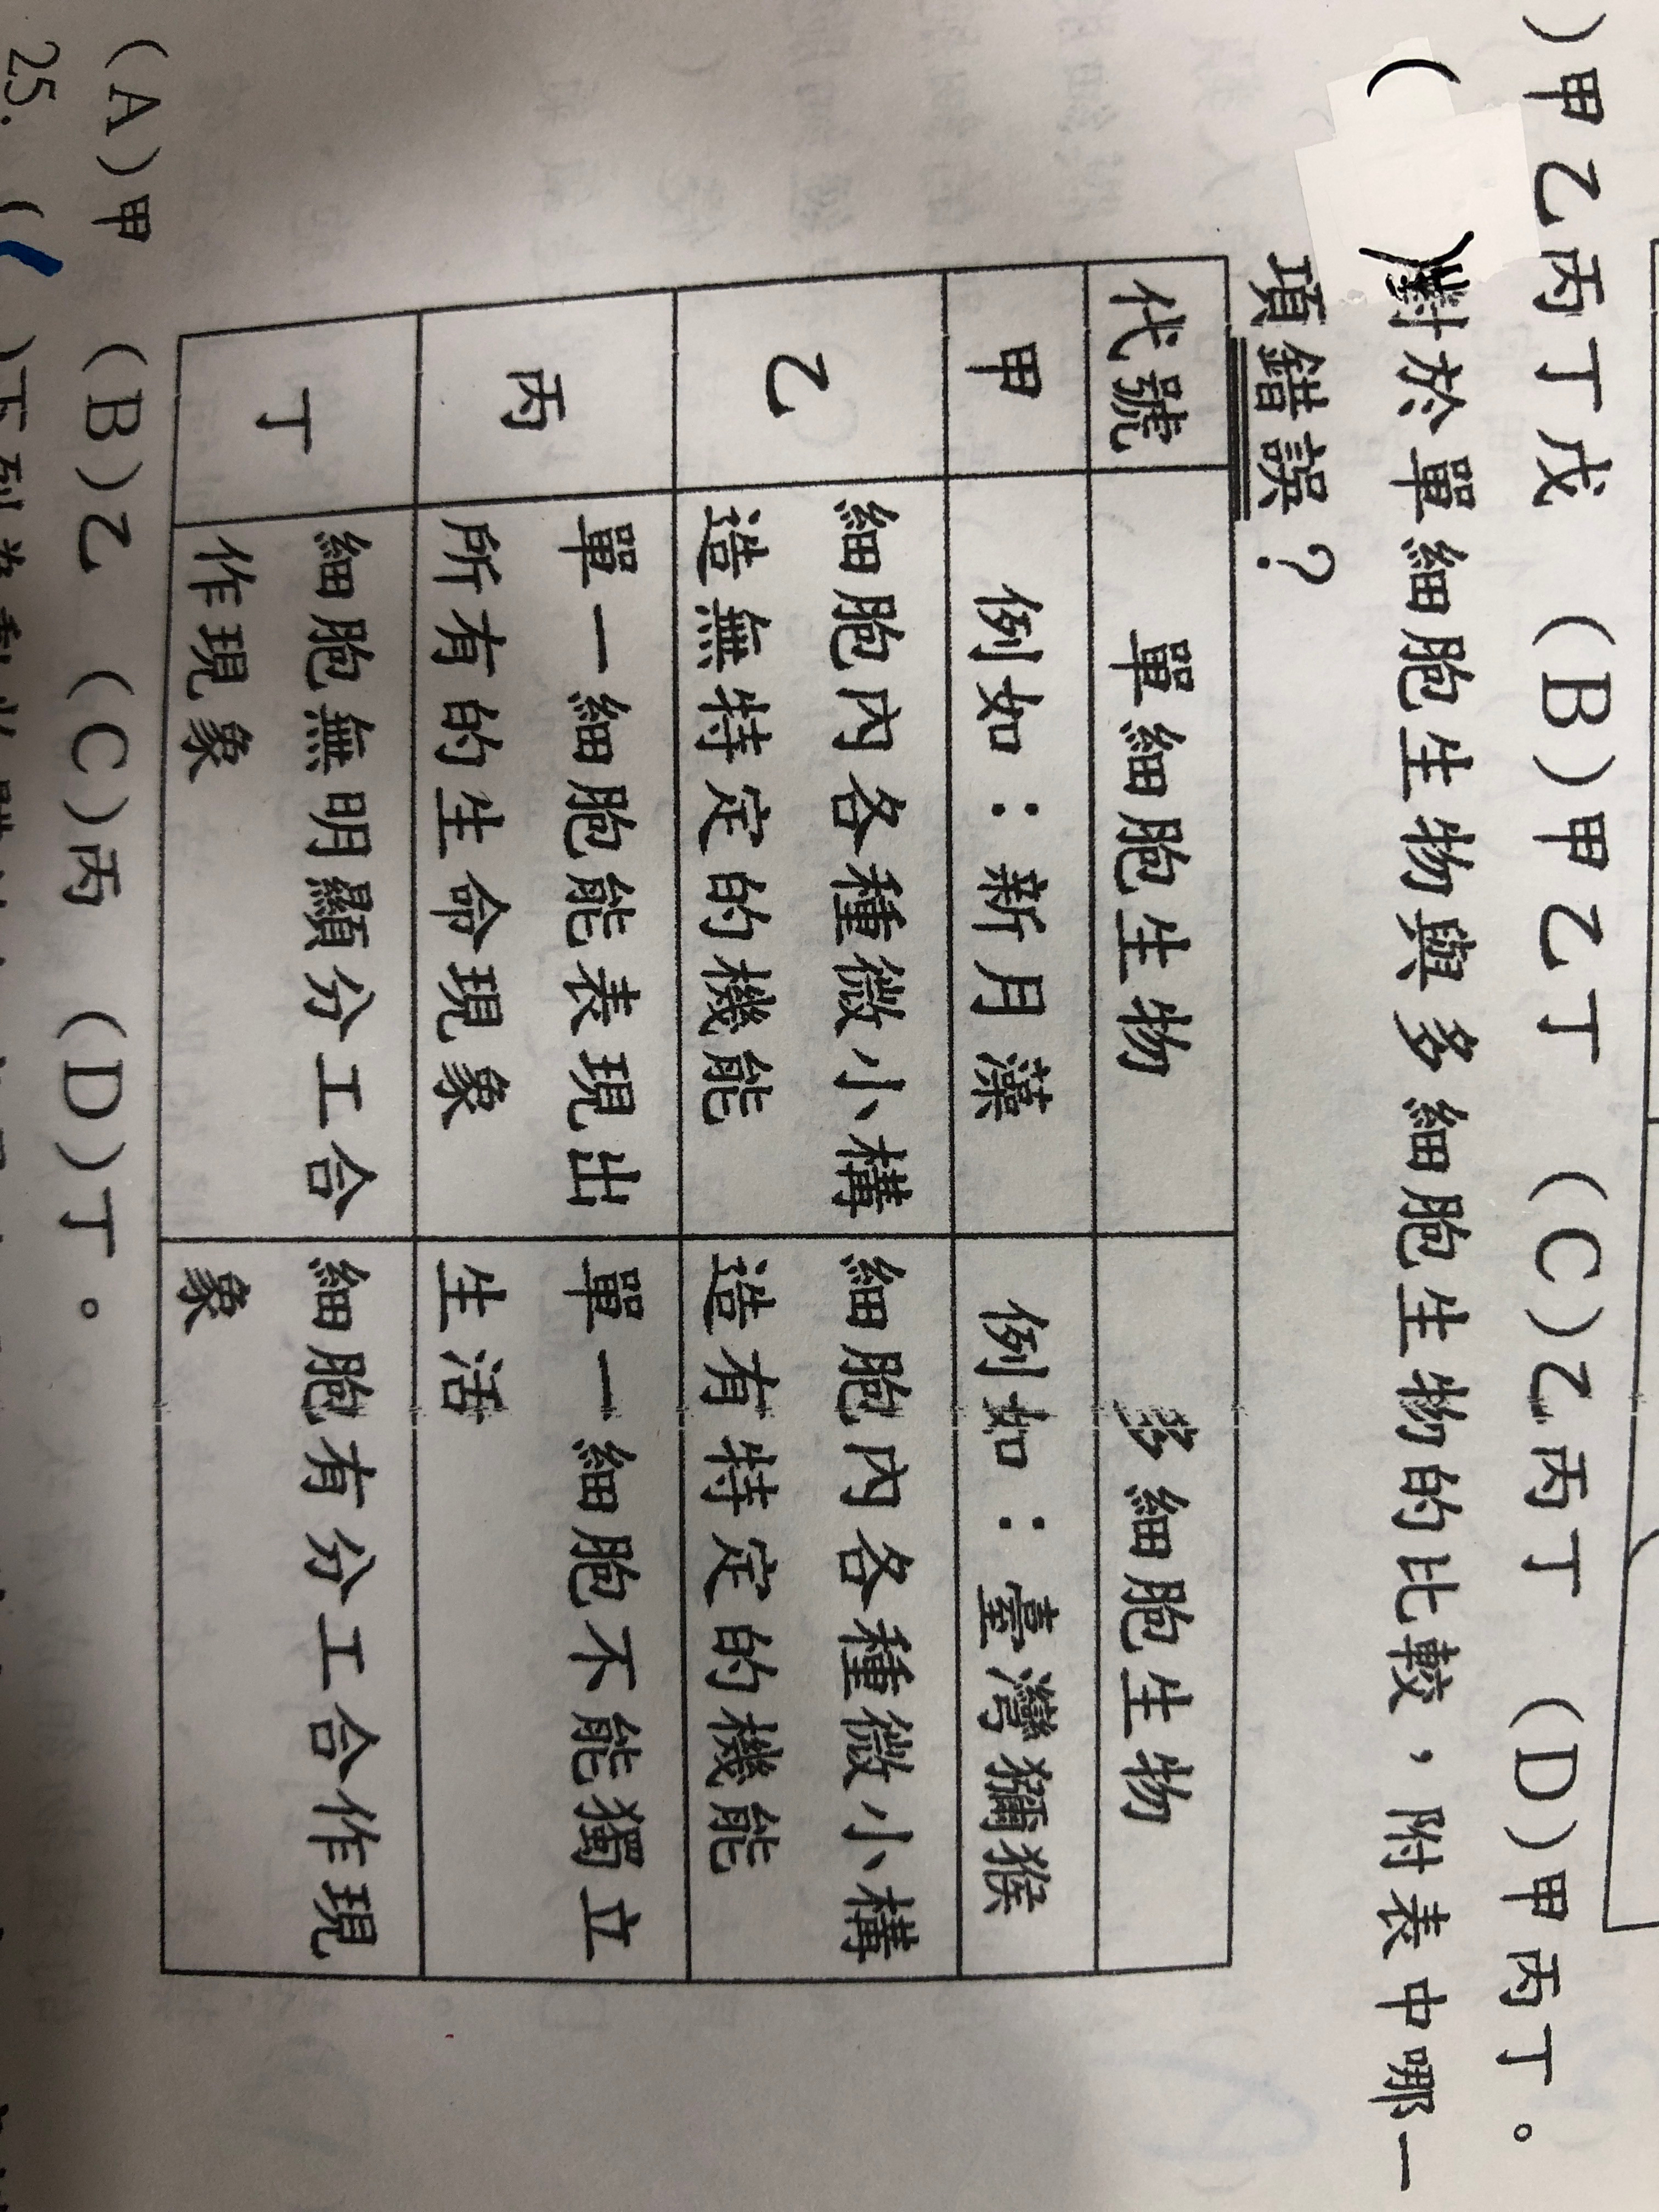 )甲乙丙丁戊 (B)甲乙丁 (C)乙丙丁 (D)甲丙丁。
( )對於單細胞生物與多細胞生物的比較，附表中哪一
項錯誤？
代號 單細胞生物 多細胞生物
甲 例如：新月藻 例如：臺灣獼猴
乙 細胞內各種微小構 細胞內各種微小構
造無特定的機能 造有特定的機能
丙 單一細胞能表現出 單一細胞不能獨立
所有的生命現象 生活
丁 細胞無明顯分工合 細胞有分工合作現
作現象 象
(A)甲 (B)乙 (C)丙 (D)丁。
25. ( )下列